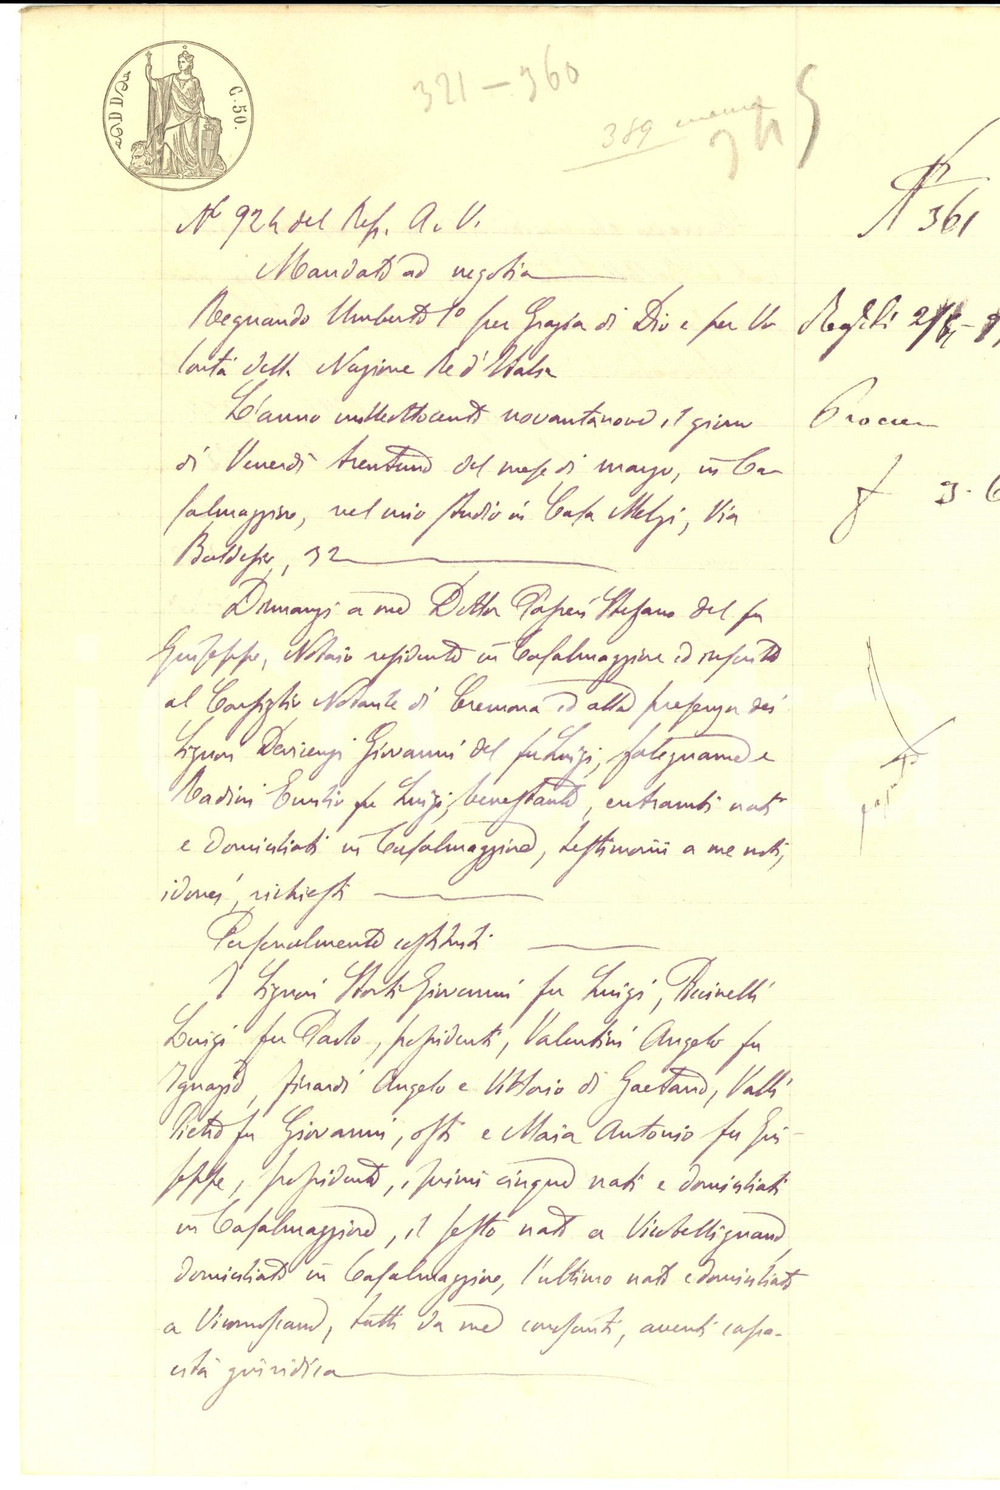 C. 50.
321 – 360
389
345
N° 361
N° 924 del Rep. A. V.
Mandato ad negotia
Regnando Umberto I° per Grazia di Dio e per Vo
lontà della Nazione Re d'Italia
L'anno milleottocento novantanove, il giorno
di Venerdì trentuno del mese di marzo, in Ca-
salmaggiore, nel mio studio in Casa Melzi, Via
32
Dinnanzi a me Dottor Stefano del fu
Giuseppe, Notaio residente in Casalmaggiore ed inscritto
al Consiglio Notarile di Cremona ed alla presenza dei
Signori Giovanni del fu Luigi, falegname e
Radini Emilio fu Luigi, benestante, entrambi nati
e domiciliati in Casalmaggiore, testimonii a me noti,
idonei, richiesti
Personalmente costituiti
I Signori Storti Giovanni fu Luigi, Piccinelli
Luigi fu Paolo, possidenti, Valentini Angelo fu
Ignazio, Angelo e Vittorio di Gaetano, Valli
Pietro fu Giovanni, osti e Maia Antonio fu Giu-
seppe, possidente, i primi cinque nati e domiciliati
in Casalmaggiore, il sesto nato a Vicobellignano,
domiciliato in Casalmaggiore, l'ultimo nato e domiciliato
a Vicomoscano, tutti da me conosciuti, aventi capa-
cità giuridica